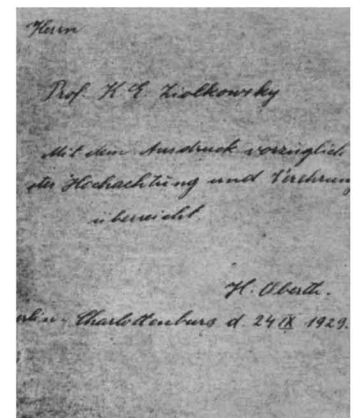 Herrn
Prof. K. E. Ziolkowsky
Mit dem Ausdruck vorzüglich
ster Hochachtung und Verehrung
überreicht
H. Oberth.
erlin-Charlottenburg d. 24 IX 1929.